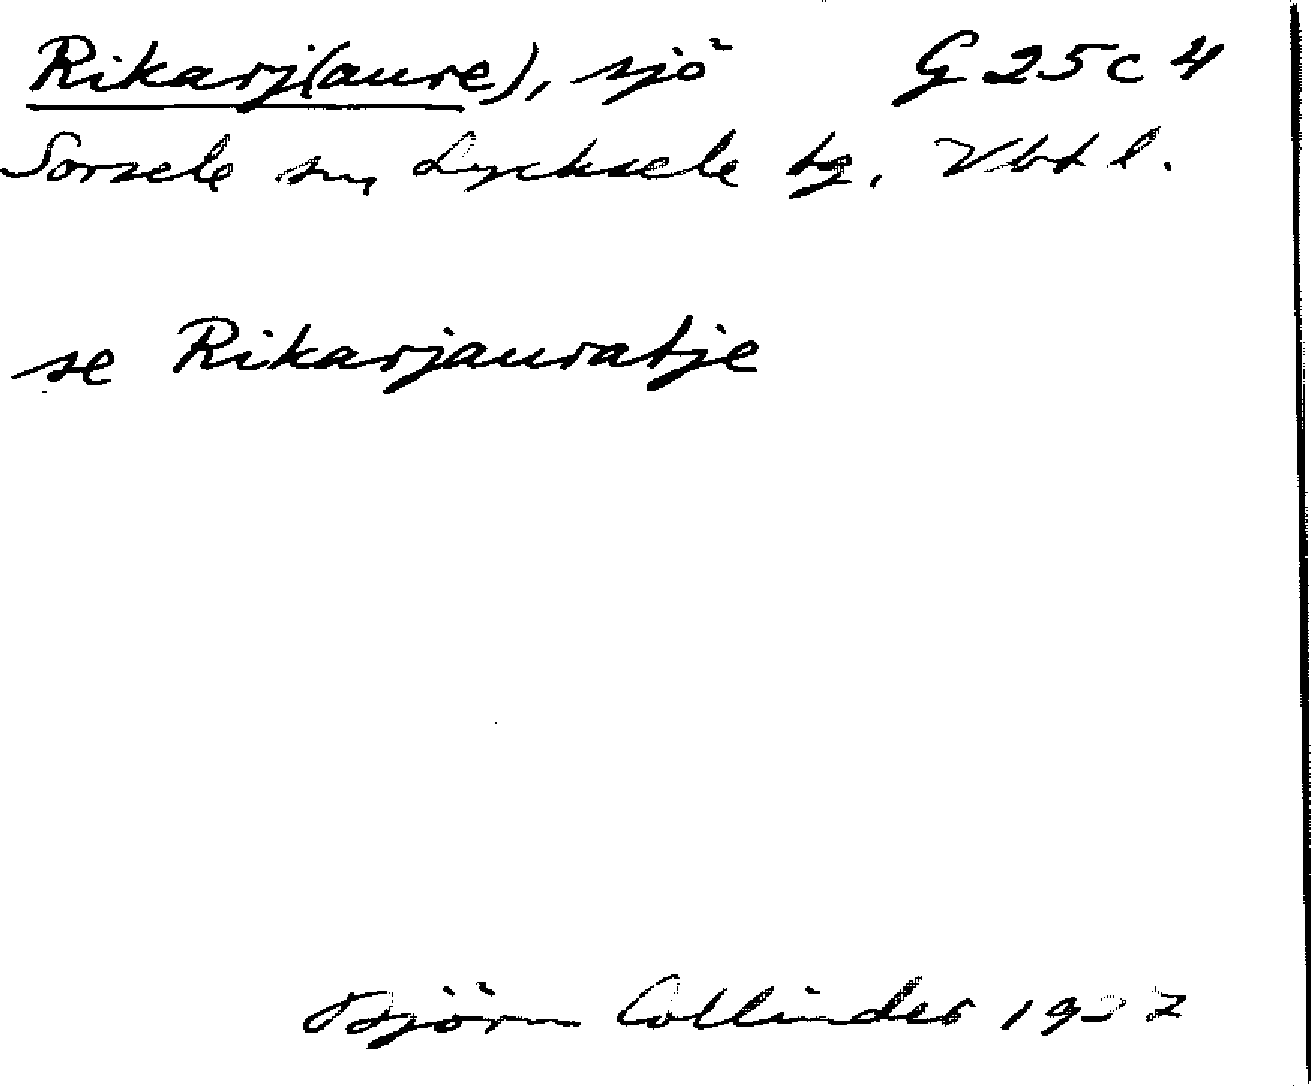 Rikarj(aure), sjö G 25 c 4
Sorsele sn, Lycksele tg. Vbt l.
se Rikarjauratje
Björn Collinder 19